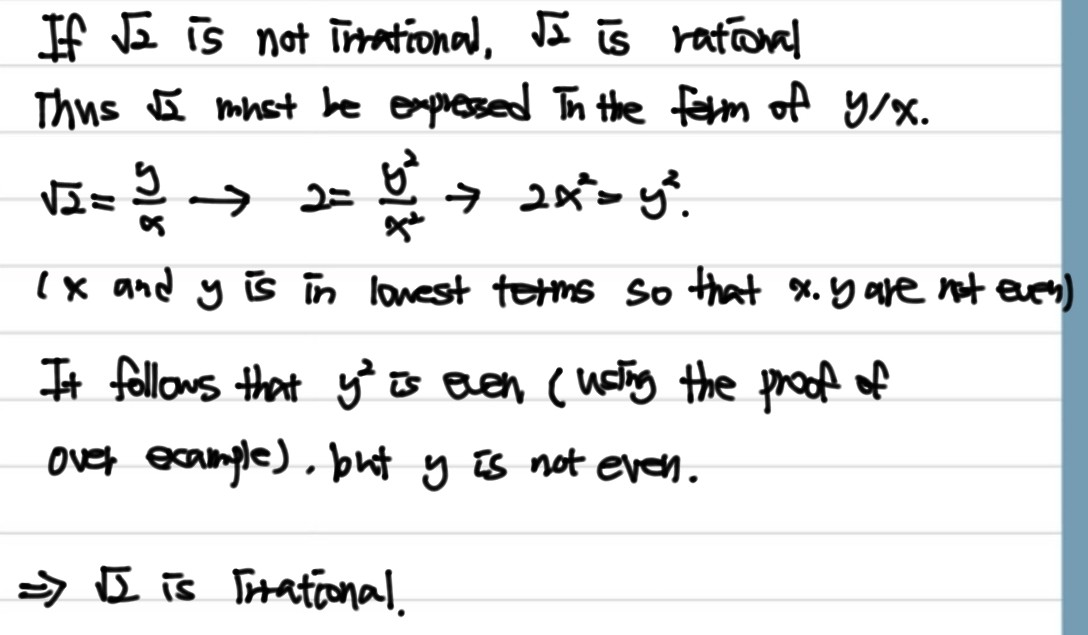 If √2 is not irrational, √2 is rational
Thus √2 must be expressed in the form of y/x.
√2 = y/x → 2 = y²/x² → 2x² = y².
(x and y is in lowest terms so that x. y are not even)
It follows that y² is even (using the proof of
over example), but y is not even.
⇒ √2 is irrational.